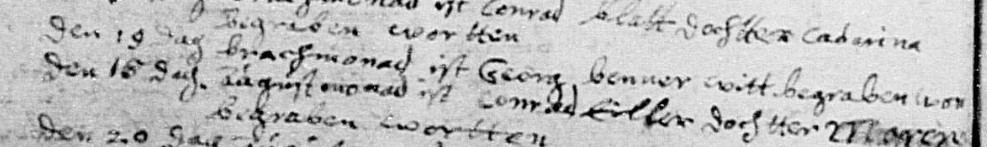 ist Conrad blatt dochtter Cadarina
begraben wortten
Den 19 dag brachmonad ist Georg benner witt begraben won
Den 16 dag augustmonad ist Conrad dochtter
begraben wortten
Den 20 dag